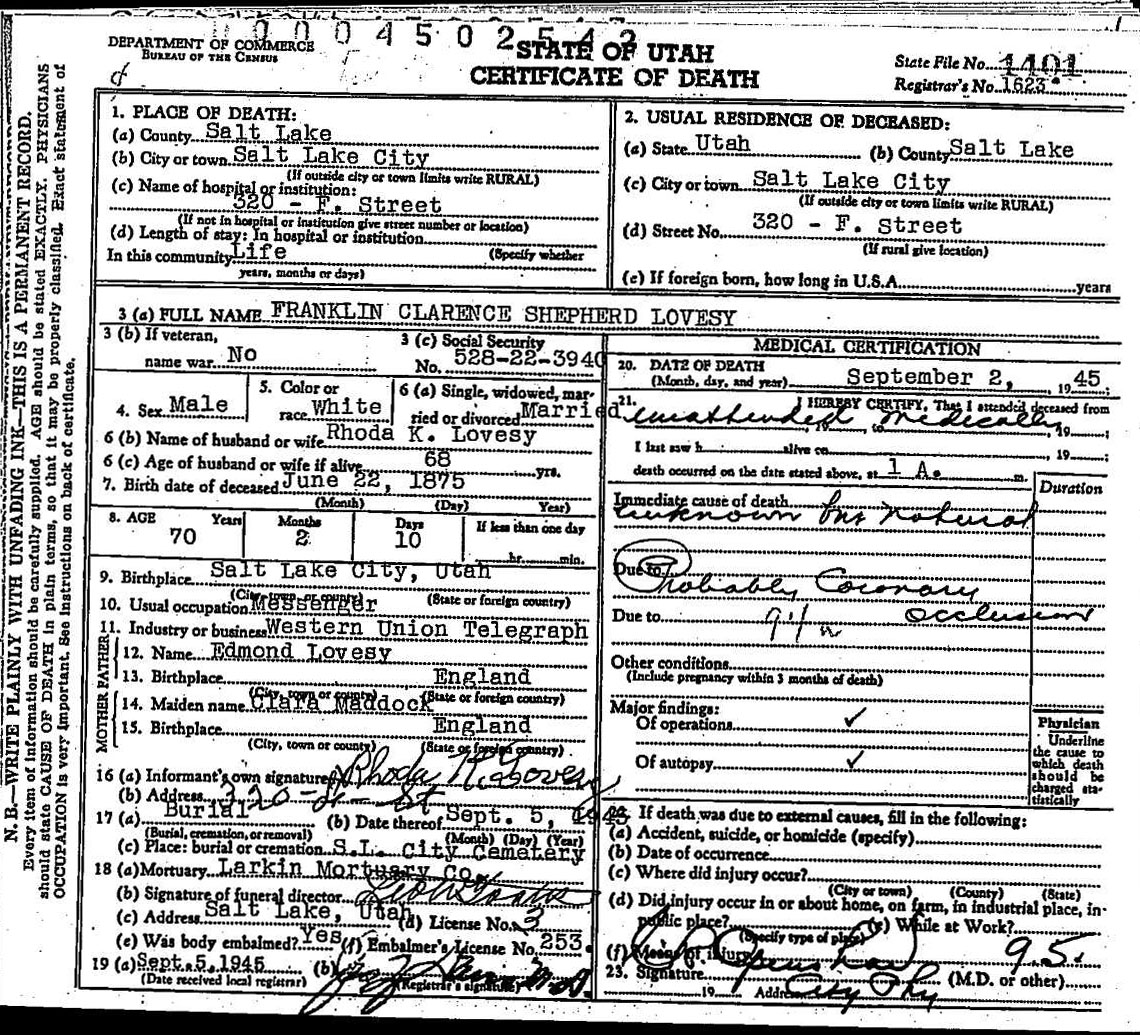 00004502543
DEPARTMENT OF COMMERCE
BUREAU OF THE CENSUS
STATE OF UTAH
CERTIFICATE OF DEATH
State File No. 1401
Registrar's No. 1623
N. B.—WRITE PLAINLY WITH UNFADING INK—THIS IS A PERMANENT RECORD.
Every item of information should be carefully supplied. AGE should be stated EXACTLY. PHYSICIANS
should state CAUSE OF DEATH in plain terms, so that it may be properly classified. Exact statement of
OCCUPATION is very important. See instructions on back of certificate.
1. PLACE OF DEATH:
(a) County Salt Lake
(b) City or town Salt Lake City
(If outside city or town limits write RURAL)
(c) Name of hospital or institution:
320 - F. Street
(If not in hospital or institution give street number or location)
(d) Length of stay: In hospital or institution
In this community Life (Specify whether
years, months or days)
2. USUAL RESIDENCE OF DECEASED:
(a) State Utah (b) County Salt Lake
(c) City or town Salt Lake City
(If outside city or town limits write RURAL)
(d) Street No. 320 - F. Street
(If rural give location)
(e) If foreign born, how long in U.S.A. years
3 (a) FULL NAME FRANKLIN CLARENCE SHEPHERD LOVESY
3 (b) If veteran,
name war No
3 (c) Social Security
No. 528-22-3940
4. Sex Male
5. Color or
race White
6 (a) Single, widowed, mar-
ried or divorced Married
6 (b) Name of husband or wife Rhoda K. Lovesy
6 (c) Age of husband or wife if alive 68 yrs.
7. Birth date of deceased June 22, 1875
(Month) (Day) Year)
8. AGE Years Months Days If less than one day
70 2 10 hr. min.
9. Birthplace Salt Lake City, Utah
(City, town or county) (State or foreign country)
10. Usual occupation Messenger
11. Industry or business Western Union Telegraph
FATHER
12. Name Edmond Lovesy
13. Birthplace England
(City, town or county) (State or foreign country)
MOTHER
14. Maiden name Clara Maddock
15. Birthplace England
(City, town or county) (State or foreign country)
16 (a) Informant's own signature Rhoda K. Lovesy
(b) Address 320 - St
17 (a) Burial (b) Date thereof Sept. 5, 1945
(Burial, cremation, or removal) (Month) (Day) (Year)
(c) Place: burial or cremation S.L. City Cemetery
18 (a) Mortuary Larkin Mortuary Co.
(b) Signature of funeral director
(c) Address Salt Lake, Utah (d) License No. 3
(e) Was body embalmed? Yes (f) Embalmer's License No. 253.
19 (a) Sept. 5, 1945 (b) M.D.
(Date received local registrar) (Registrar's signature)
MEDICAL CERTIFICATION
20. DATE OF DEATH
(Month, day, and year) September 2, 1945.
21. I HEREBY CERTIFY, That I attended deceased from
unattended medically, 19 to , 19 ;
I last saw h alive on , 19 ;
death occurred on the date stated above, at 1 A. m.
Duration
Immediate cause of death
unknown but natural
Due to
Probably Coronary
Due to occlusion
Other conditions
(Include pregnancy within 3 months of death)
Major findings:
Of operations ✓
Of autopsy ✓
Physician
Underline
the cause to
which death
should be
charged sta-
tistically
If death was due to external causes, fill in the following:
(a) Accident, suicide, or homicide (specify)
(b) Date of occurrence
(c) Where did injury occur?
(City or town) (County) (State)
(d) Did injury occur in or about home, on farm, in industrial place, in-
public place? (e) While at Work?
(Specify type of place)
(f) Means of injury 9.5.
23. Signature (M.D. or other)
19 Address City Phy